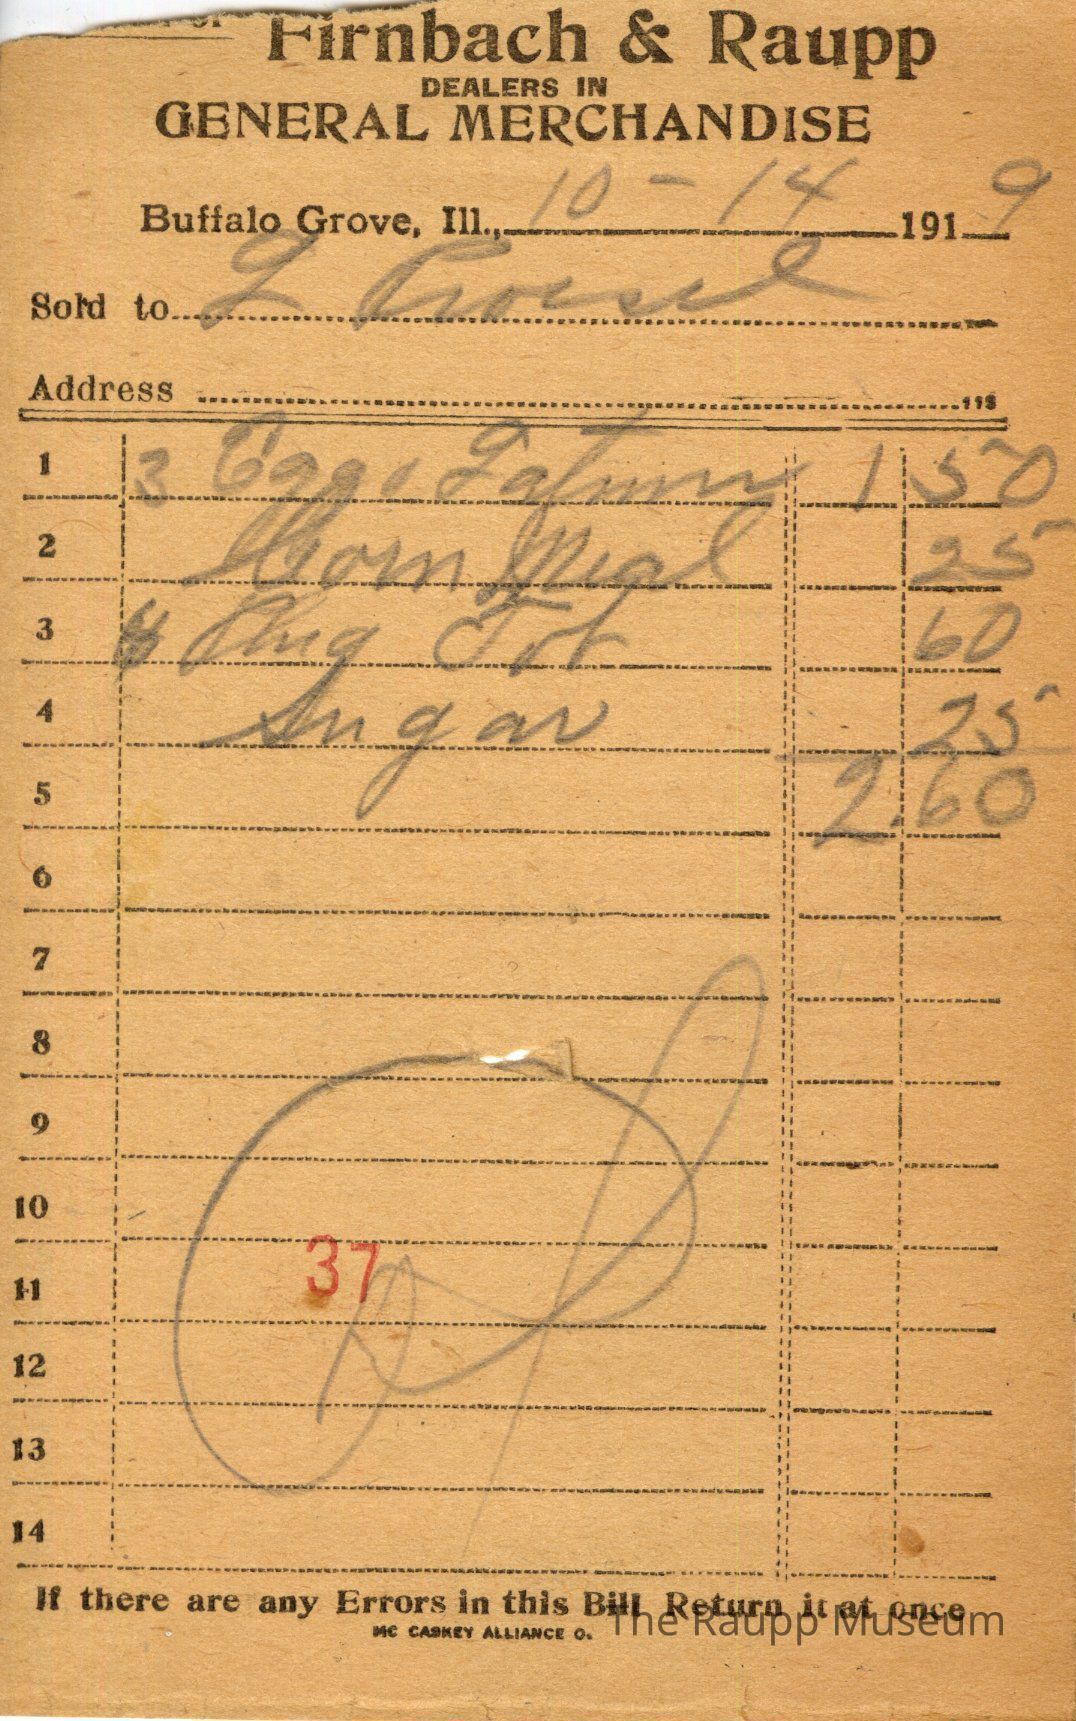 Firnbach & Raupp
DEALERS IN
GENERAL MERCHANDISE
Buffalo Grove, Ill., 10-14 1919
Sold to
Address
1 3 Eggs 1 50
2 Corn Meal 25
3 Plug Tob 60
4 Sugar 25
5 2.60
6
7
8
9
10
37
11
12
13
14
If there are any Errors in this Bill Return it at once
MC CASKEY ALLIANCE O.
The Raupp Museum